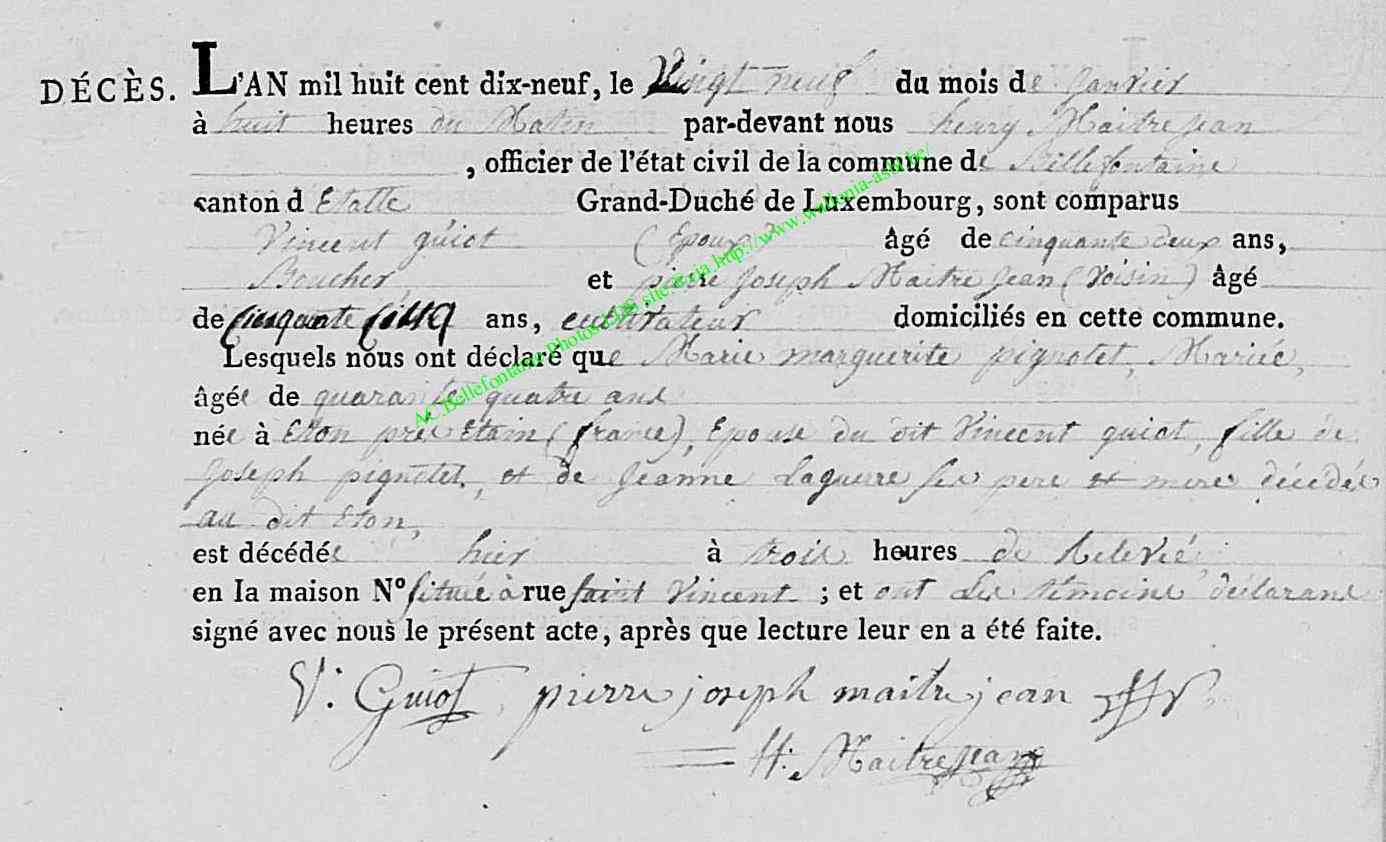 DÉCÈS. L'AN mil huit cent dix-neuf, le Vingt neuf du mois de Janvier
à huit heures du Matin par-devant nous henry Maitrejean
, officier de l'état civil de la commune de Bellefontaine
canton d Etalle Grand-Duché de Luxembourg, sont comparus
Vincent guiot (Epoux) âgé de cinquante deux ans,
Boucher, et pierre Joseph Maitrejean (Voisin) âgé
de cinquante cinq ans, cultivateur domiciliés en cette commune.
Lesquels nous ont déclaré que Marie marguerite pignolet, Mariée,
âgée de quarante quatre ans
née à Eton près Etain (france), Epouse du dit Vincent guiot, fille de
Joseph pignolet, et de Jeanne Laguerre ses pere et mere décédés
au dit Eton,
est décédée hier à trois heures de Relevé
en la maison N° située à rue saint Vincent ; et ont les témoins déclarans
signé avec nous le présent acte, après que lecture leur en a été faite.
V: Guiot pierre joseph maitrejean
H: Maitrejean
AC Bellefontaine Photos site asria http://www.wallonia-asbl.be/